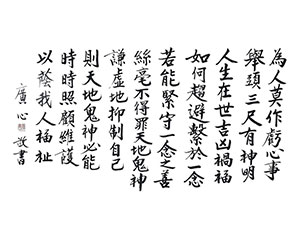 為人莫作虧心事
舉頭三尺有神明
人生在世吉凶禍福
如何趨避繫於一念
若能緊守一念之善
絲毫不得罪天地鬼神
謙虛地抑制自己
則天地鬼神必能
時時照顧維護
以蔭我人福祉
廣心敬書